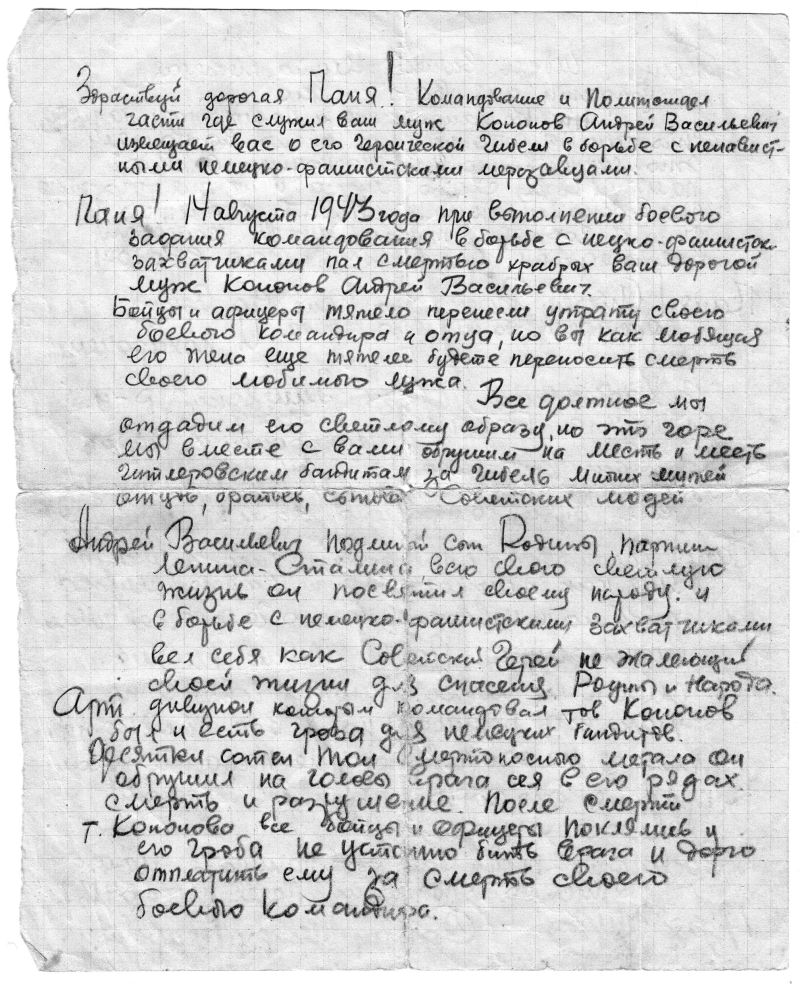 Здраствуй дорогая Паня! Командование и Политотдел
части где служил ваш муж Кононов Андрей Васильевич
извещает вас о его Героической Гибели в борьбе с ненавист-
ными немецко-фашистскими мерзавцами.
Паня! 14 августа 1943 года при выполнении боевого
задания командования в борьбе с нецко-фашистск.
захватчиками пал смертью храбрых ваш дорогой
муж Кононов Андрей Васильевич.
Бойцы и афицеры тяжело перенесли утрату своего
боевого командира и отца, но вы как любящая
его жена еще тяжелее будете переносить смерть
своего любимого мужа.
Все должное мы
отдадим его светлому образу, но это горе
мы вместе с вами обрушим на месть и месть
Гитлеровским бандитам за гибель милых мужей
отцов, братьев, сынов Советских людей
Андрей Васильевич сын Родины партии
Ленина-Сталина всю свою светлую
жизнь он посвятил своему народу. и
в борьбе с немецко-фашистскими захватчиками
вел себя как Советский Герой не жалеющий
своей жизни для спасения Родины и Народа.
Арт дивизион которым командовал тов Кононов
был и есть гроза для немецких бандитов.
Десятки сотен тон смертоносного метала он
обрушил на головы врага сея в его рядах
смерть и разрушение. После смерти
т. Кононова все бойцы и офицеры поклялись у
его гроба не устанно бить врага и дорго
отплатить ему за смерть своего
боевого командира.